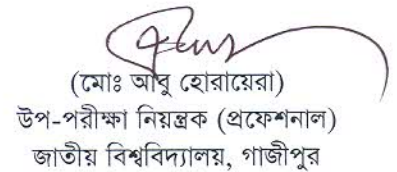 (মোঃ আবু হোরায়েরা)
উপ-পরীক্ষা নিয়ন্ত্রক (প্রফেশনাল)
জাতীয় বিশ্ববিদ্যালয়, গাজীপুর